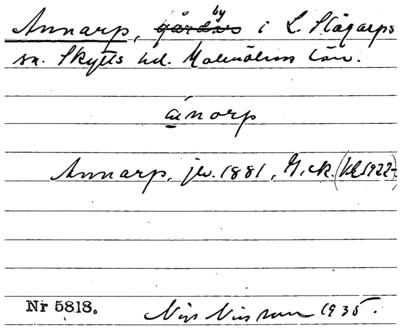 by
Annarp, gårdar i L. Slågarps
sn. Skytts hd. Malmöhus län.
ánorp
Annarp, jvs. 1881, G.ck. (Kl 1922-
Nr 5818. Nils Nilsson 1935.